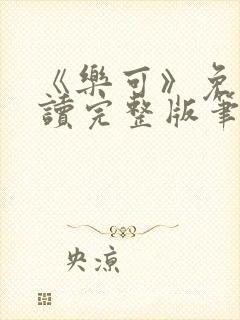 《樂可》免
讀完整版筆
央凉